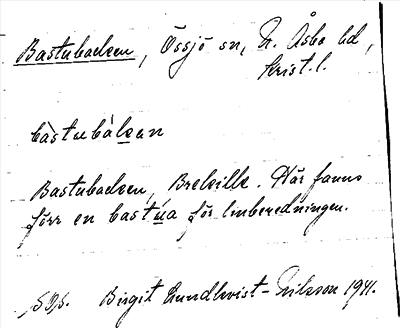 Bastubacken, Össjö sn, N. Åsbo hd,
Krist. l.
bàstubàkan
Bastubacken, Breleille. Här fanns
förr en bastúa för linberedningen.
Birgit Lundkvist-Nilsson 1941.